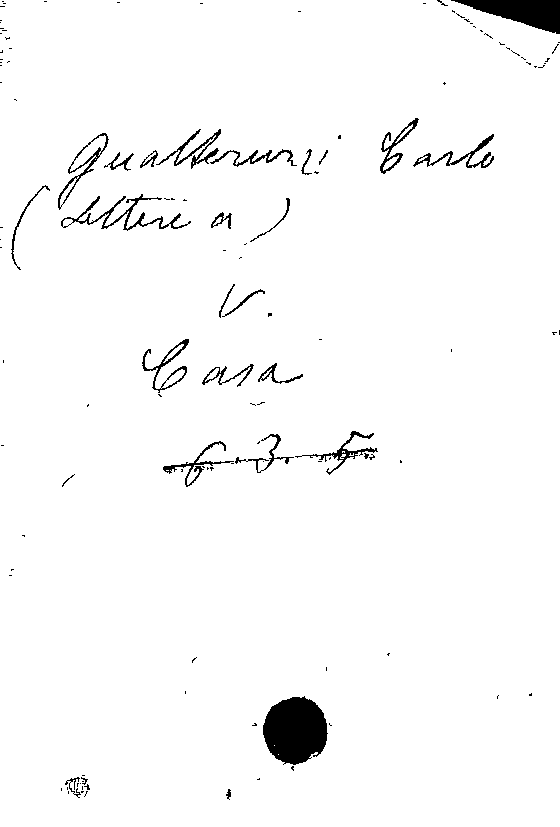 Gualteruzzi Carlo
(Lettere a)
V.
Casa
6.3.5